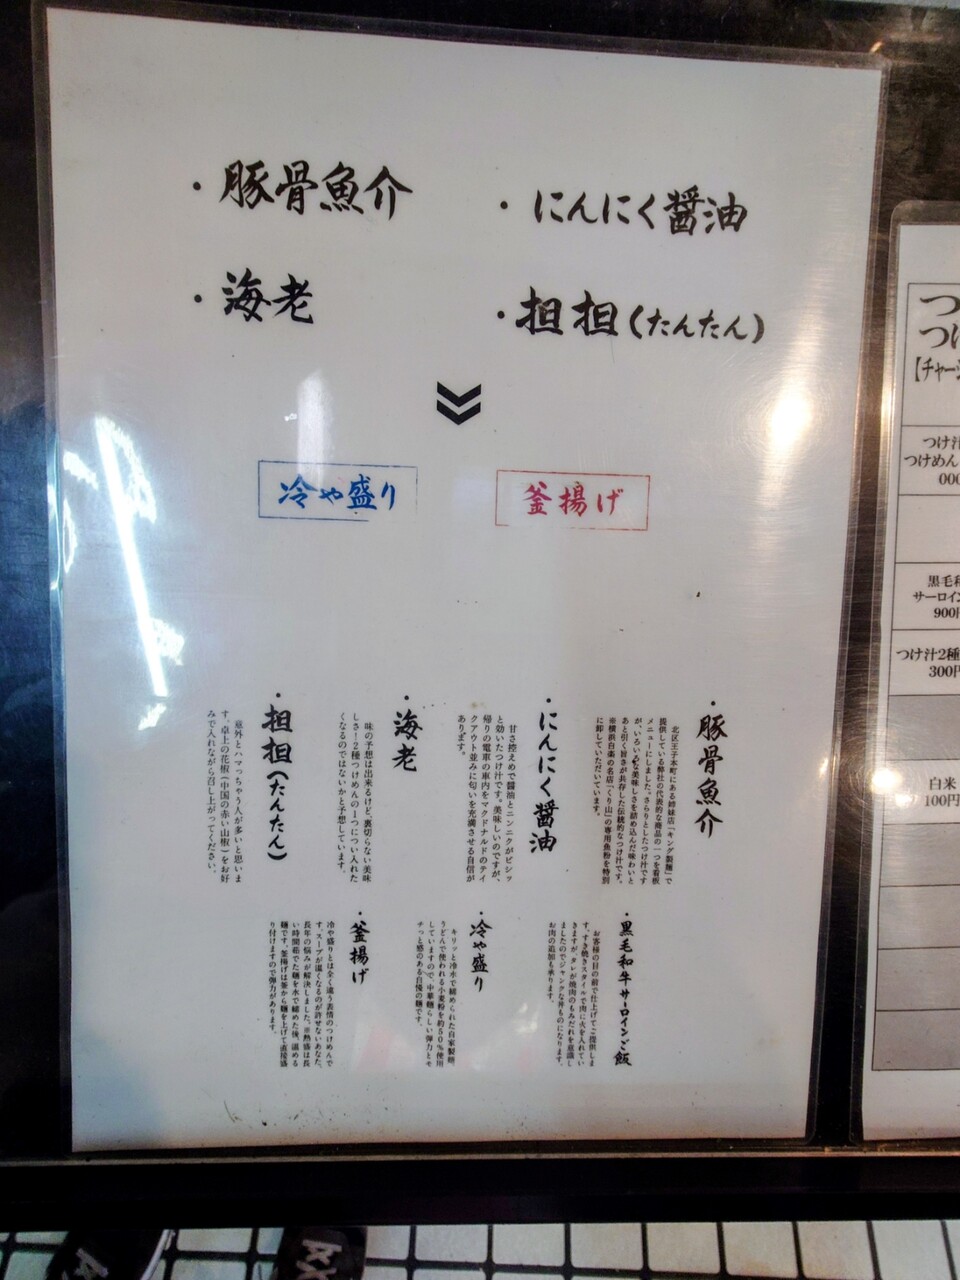 ・豚骨魚介
・にんにく醤油
・海老
・担担(たんたん)
冷や盛り
釜揚げ
・豚骨魚介
北区王子本町にある姉妹店「キング製麺」で
提供している弊社の代表的な商品の一つを看板
メニューにしました。さらりとしたつけ汁です
が、いろいろな美味しさを詰め込んだ味わいと
あと引く旨さが共存した伝統的なつけ汁です。
※横浜白楽の名店「くり山」の専用魚粉を特別
に卸していただいています。
・にんにく醤油
甘さ控えめで醤油とニンニクがビシッ
と効いたつけ汁です。美味しいのですが、
帰りの電車の車内をマクドナルドのテイ
クアウト並みに匂いを充満させる自信が
あります。
・海老
味の予想は出来るけど、裏切らない美味
しさ!2種つけめんの1つについ入れた
くなるのではないかと予想しています。
・担担(たんたん)
意外とハマっちゃう人が多いと思いま
す。卓上の花椒(中国の赤い山椒)をお好
みで入れながら召し上がってください。
・黒毛和牛サーロインご飯
お客様の目の前で仕上げてご提供しま
す。すき焼きスタイルで肉に火を入れてい
きますが、タレが焼肉のもみだれを意識し
ましたのでジャンクな丼ものになります。
お肉の追加も承ります。
・冷や盛り
キリッと冷水で締められた自家製麺。
うどんで使われる小麦粉を約50%使用
していますので、中華麺らしい弾力とモ
チっと感のある自慢の麺です。
・釜揚げ
冷や盛りとは全く違う表情のつけめんで
す。スープが温くなるのが許せないあなた、
長年の悩みが解決しました。※熱盛は長
い時間茹でた麺を水で締めた後、温める
麺です。釜揚げは釜から麺を上げて直接盛
り付けますので弾力があります。
つ
つけ
【チャーシ
つけ汁
つけめん
000
黒毛和
サーロイン
900円
つけ汁2種
300円
白米
100円